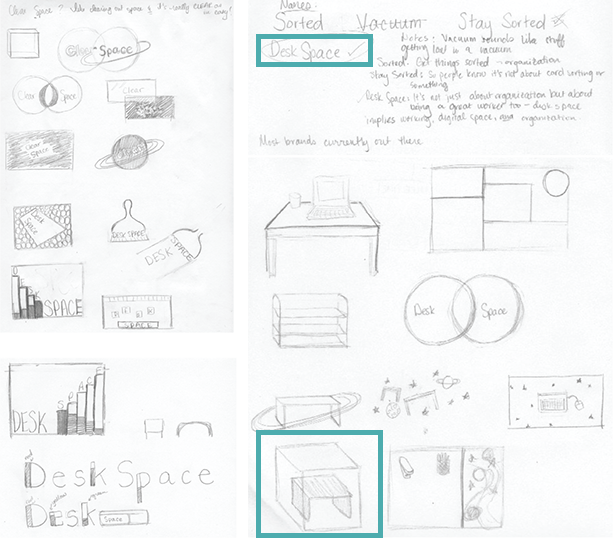 Clear Space?
Clear Space
Clear Space
Clear
Clear Space
Desk Space
DESK SPACE
DESK SPACE
SPACE
SPACE
DESK SPACE
Desk Space
Desk
Space
Names:
Sorted Vacuum Stay Sorted
Desk Space ✓
Notes: Vacuum sounds like stuff
getting lost in a vacuum
Sorted: Get things sorted - organization
Stay Sorted: So people know it's not about card writing or
something
Desk Space: It's not just about organization but about
being a great worker too - desk space
implies working, digital space, and organization.
Most brands currently out there
Desk Space